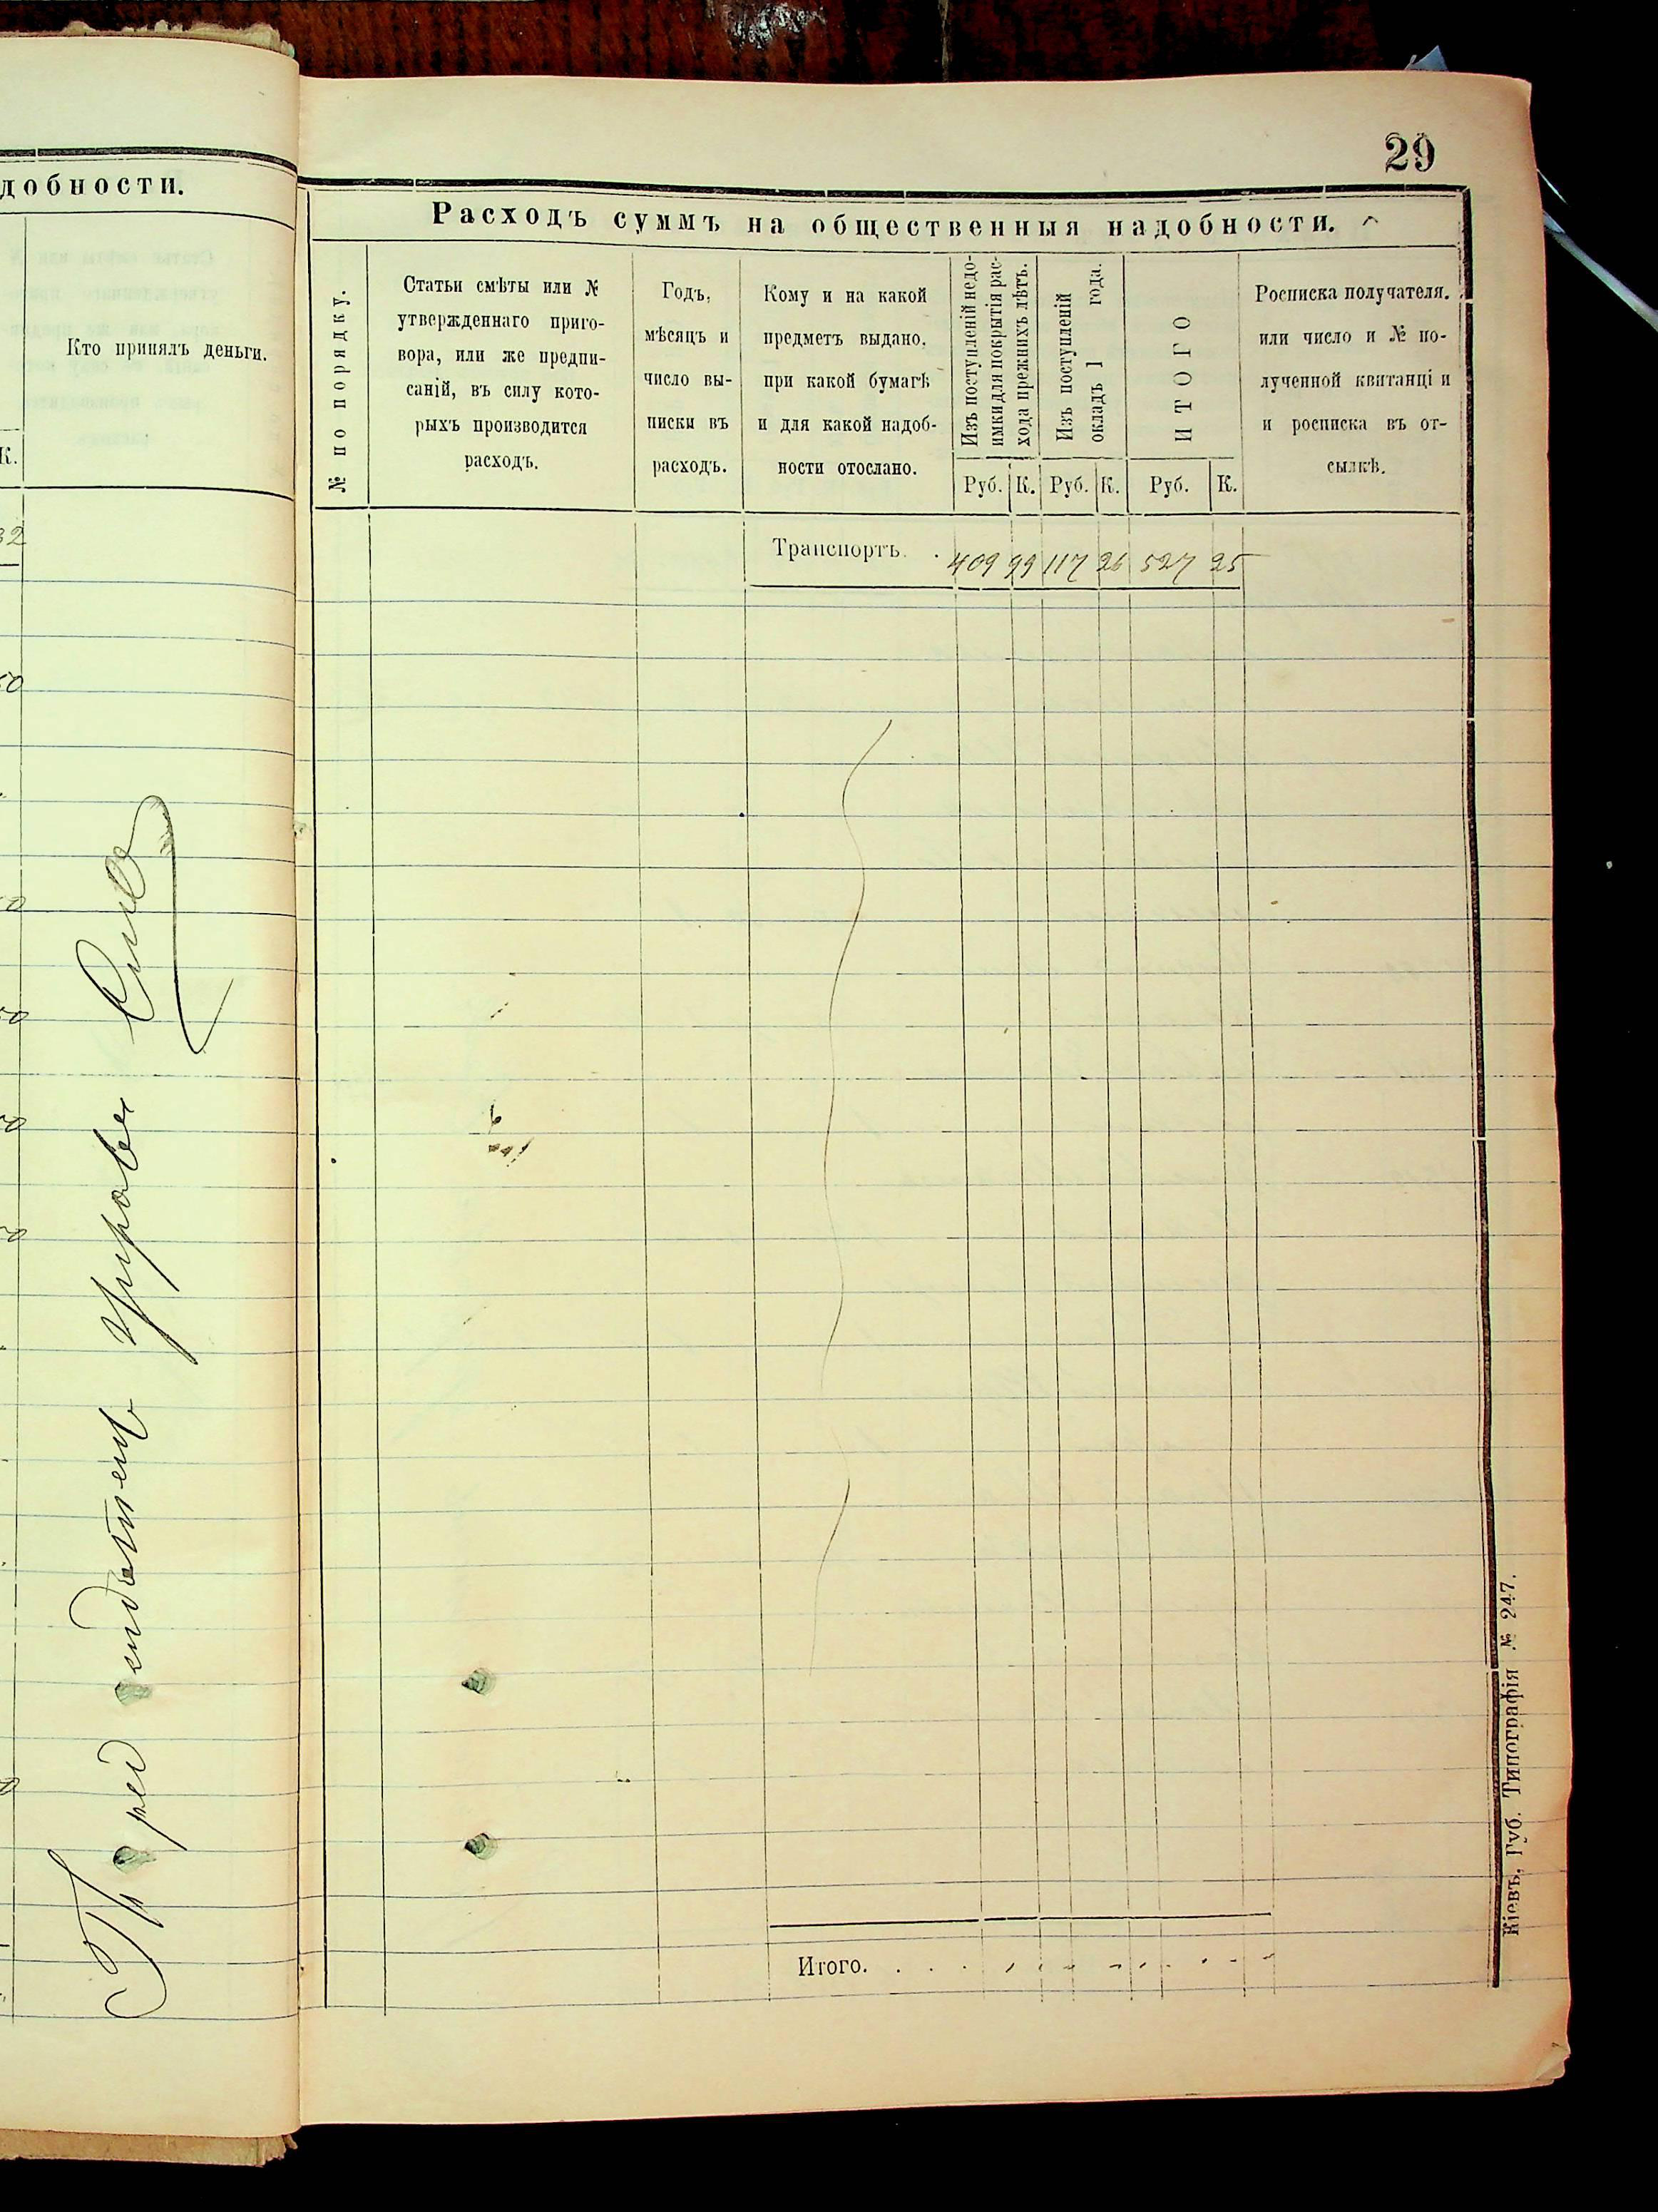 29
добности.
Кто принялъ деньги.
К.
32
50
Расходъ суммъ на общественныя надобности.
№ по порядку.
Статьи смѣты или №
утвержденнаго приго-
вора, или же предпи-
саній, въ силу кото-
рыхъ производится
расходъ.
Годъ,
мѣсяцъ и
число вы-
писки въ
расходъ.
Кому и на какой
предметъ выдано,
при какой бумагѣ
и для какой надоб-
ности отослано.
Изъ поступленій недо-
имки для покрытія рас-
хода прежнихъ лѣтъ.
Изъ поступленій
окладъ 1 года.
ИТОГО
Росписка получателя.
или число и № по-
лученной квитанціи
и росписка въ от-
сылкѣ.
Руб. К. Руб. К. Руб. К.
Транспортъ. 409 99 117 26 527 25
Итого.
Кіевъ, Губ. Типографія № 247.